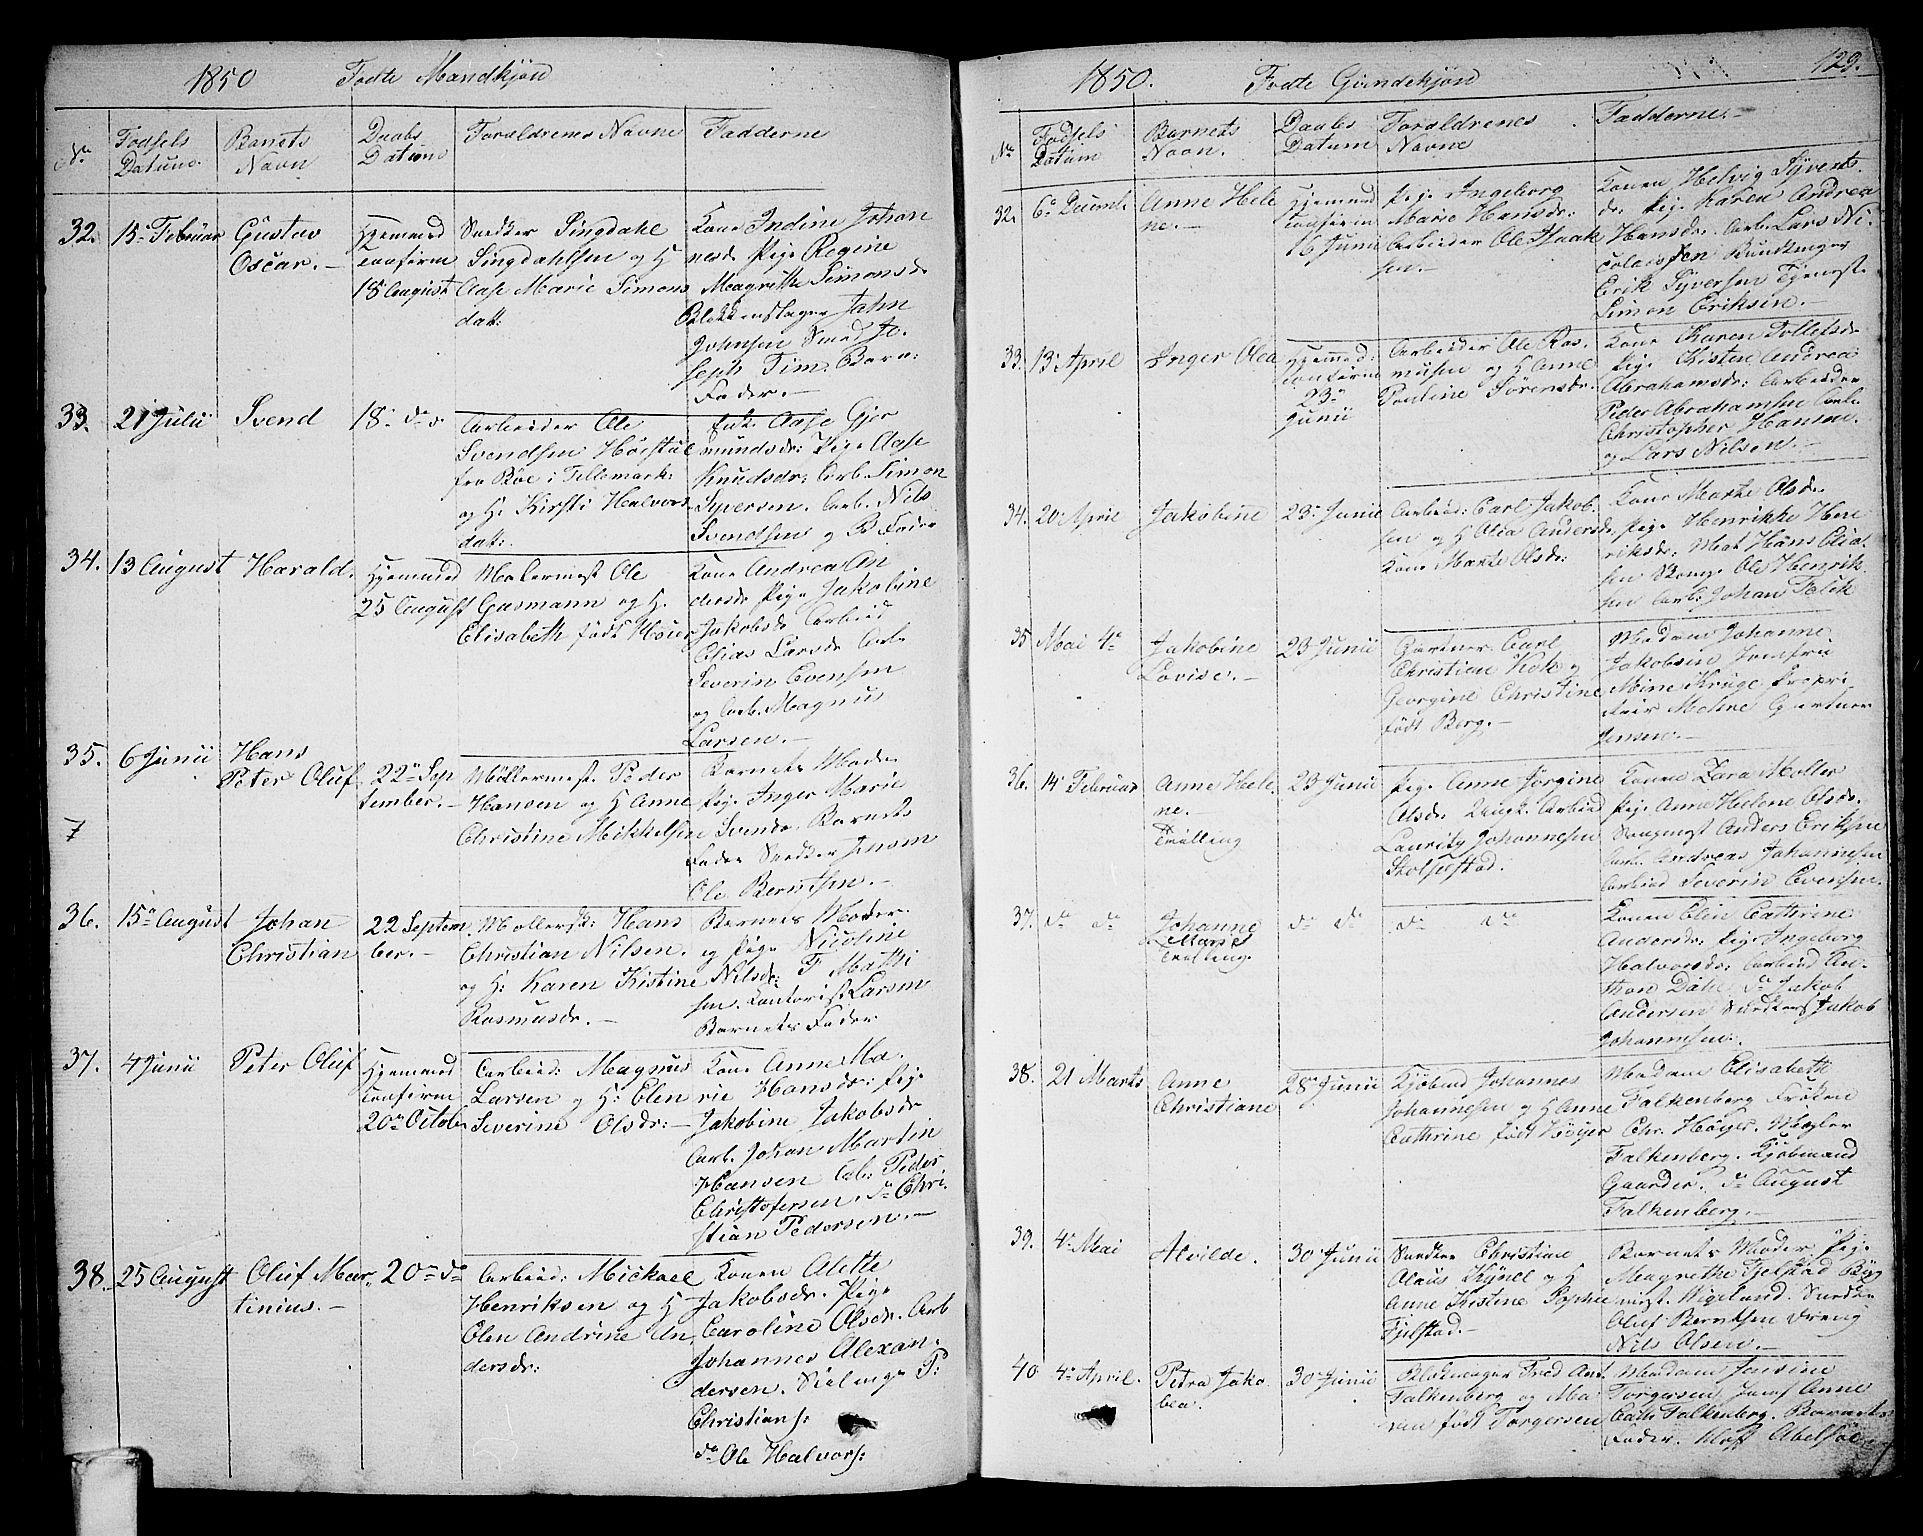 1850 Fodte Mandkjön
No Fodsels Datum Barnets Navn Daabs Datum Foraldrenes Navne Fadderne
32. 15 Februar Gustav Oscar.
Hjemmed confirm 18 August
Snedker Singdahl
Singdahlsen og H
Aase Marie Simons
datt:
Kone Indine Johan
nesd Pige Regine
Magrithe Simonsd
Blikkenslager Jahn
Johnsen Smed Jo.
seph Tim. Barn:
Fader.
33. 21 Julii Svend 18 do
Arbeider Ole
Svendsen Höistul
fra Böe i Tellemark:
og H: Kirsti Halvors
datt:
Enk: Aase Gjer
mundsdr: Pige Aase
Knudsdr: Arb. Simon
Syversen. Arb. Nils
Svendsen og B Fader
34. 13 August Harald.
Hjemmed
25 August
Malermest Ole
Gasmann og H.
Elisabeth födt Höier
Kone Andrea An
dersd Pige Jakobine
Jakobsd Arbeid
Elias Larsd Arb
Severin Evensen
og Arb. Magnus
Larsen.
35. 6 Junii Hans
Peter Oluf
22 Sep
tember.
Möllermest. Peder
Hansen og H Anne
Christine Mikkelsen
Barnets Moder
Pige Inger Marie
Svendr. Barnets
Fader Snedker Jensm
Ole Berntsen.
7
36. 15 August Johan
Christian
22 Septem
ber.
Mollersk: Hans
Christian Nilsen.
og H: Karen Kistine
Rasmusdr.
Barnets Moder.
og Pige Nicoline
Nilsdr: F Mathi
sen. Kontorist Larsen
Barnets Fader
37. 4 Junii Peter Oluf
Hjemmed
confirm
20 Octob
Arbeid: Magnus
Larsen og H: Elen
Severine Olsdr:
Kone Anne Ma.
rie Hansdr: Pige
Jakobine Jakobsdr
Arb. Johan Martin
Hansen Arb: Peder
Christofersen. do Chri.
stian Pedersen.
38. 25 August Oluf Mar
tinius.
20 do
Arbeid: Mickael
Henriksen og H
Olen Andrine An
dersdr:
Konen Alette
Jakobsdr. Pige
Caroline Olsdr. Arb
Johannes Alexan.
dersen. P:
Christians:
do Ole Halvors:
1850. Fodte Qvindekjön 129.
No Fodsels Datum Barnets Navn. Daabs Datum Foraldrenes Navne Fadderne.
32. 6 Anne Hele
ne.
Hjemmed
confirm
16 Junii
Pige Ingeborg
Marie Hansdr:
Arbeider Ole Haak
sen.
Konen Helvig Syverts
dr. Pige Karen Andrea
Hansdr. Arb. Lars Ni
colaissen
Erik Syversen Tjenest.
Simon Eriksen.
33. 13 April Inger Olea
Hjemmed:
confirm
23
Junii
Arbeider Ole Ras.
musen og H Anne
Pauline Sörensdr.
Kone Karen Tollefsdr
Pige Kisten Andrea
Abrahamsdr: Arbeider
Peder Abrahamsen Arb
Christopher Hansen.
og Lars Nilsen.
34. 20 April Jakobine 23 Junii
Arbeid: Carl Jakob.
sen og H Olia Andersdr
Kone Marthe Olsdr:
Kone Marthe Olsdr.
Pige Henrikke Hen
riksdr. Mat Hans Elia.
sen Ole Henrik
sen Arb: Johan Falck
35 Mai 4 Jakobine
Lovise.
23 Junii
Gartner Carl
Christian Kok og
Georgine Christine
födt Berg.
Madam Johanne
Jakobsen Jomfru
Mine Kruge Propri
tair Moline Gartner
Jensen.
36. 14 Februar Anne Hele.
ne.
Tvilling
23 Junii
Pige Anne Jörgine
Olsdr Arbeid
Lauritz Johannesen
Stolpestad.
Konne Zara Moller
Pige Anne Helene Olsdr.
Anders Eriksen
Arb. Andreas Johannesen
Arbeid Severin Evensen.
37. do do Johanne
Marie
Tvilling.
do do do do
Konen Elin Cathrine
Andersdr. Pige Ingeborg
Halvorsdr: Arbeid An.
thon Dahl do Jakob
Andersen Snedker Jakob
Johannesen:
38. 21 Marts Anne
Christiane
28 Junii
Kjöbmd Johannes
Johannesen og H Anne
Cathrine födt Höyer
Madam Elisabeth
Falkenberg Fröken
Chr. Höyer. Mægler
Falkenberg. Kjöbmand
Gaarder. do August
Falkenberg.
39. 4 Mai Alvilde. 30 Junii
Snedker Christian
Olaus Kynel og H
Anne Kistine Sophie
Fjelstad.
Barnets Moder. Pige
Magrethe Fjelstad Byg
mest. Wigeland. Snedker
Oluf Berntsen Dreng
Nils Olsen.
40 4 April. Petra Jako
bea.
30 Junii
Fred Ant.
Falkenberg og Ma
ren födt Torgersen
Madam Jensine
Torgersen Jomf Anne
Cath Falkenberg. Barnets
Fader.